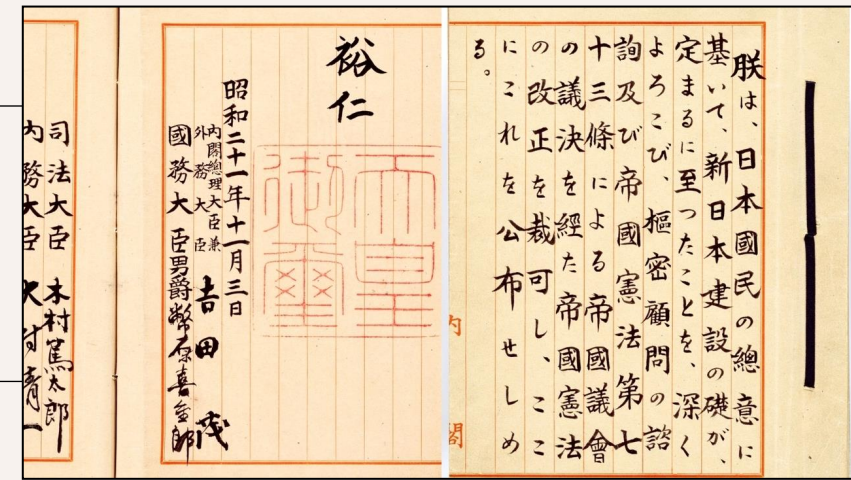 朕は、日本國民の總意に
基いて、新日本建設の礎が、
定まるに至つたことを、深く
よろこび、樞密顧問の諮
詢及び帝國憲法第七
十三條による帝國議會
の議決を經た帝國憲法
の改正を裁可し、ここ
にこれを公布せしめ
る。
内閣
裕仁
天皇御璽
昭和二十一年十一月三日
内閣總理大臣兼
外務大臣
吉田茂
國務大臣男爵幣原喜重郎
司法大臣 木村篤太郎
内務大臣 大村清一